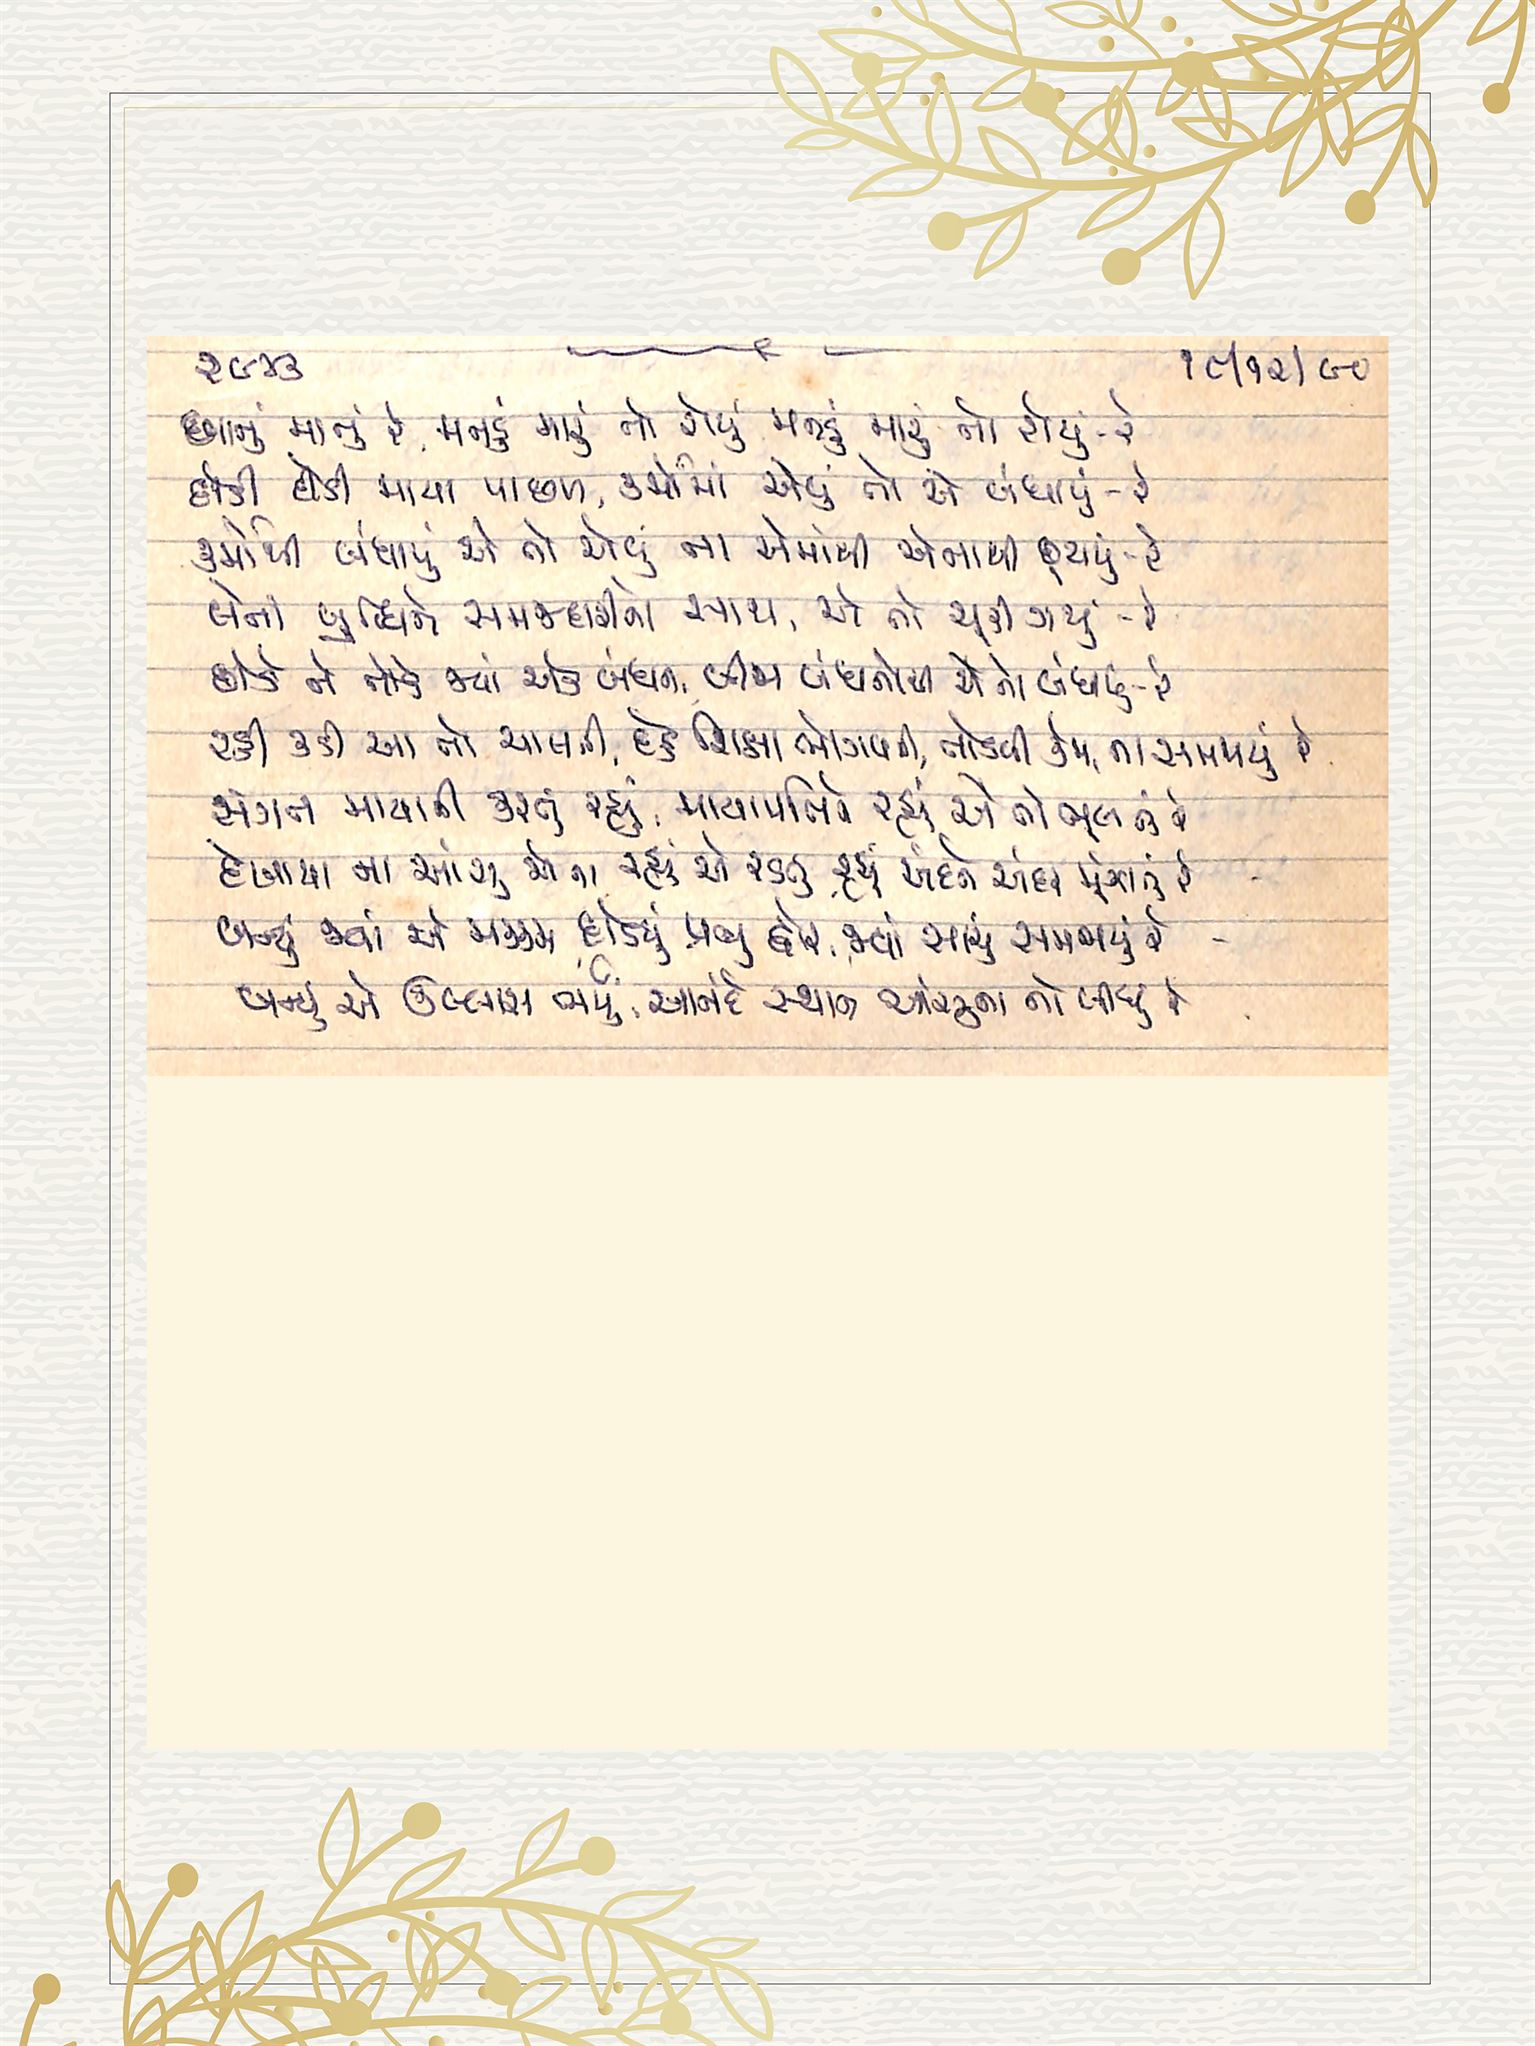 ૨૯૪૩ ૧૯/૧૨/૯૦
છાનું માનું રે, મનડું મારું તો રોયું મનડું મારું તો રોયું - રે
દોડી દોડી માયા પાછળ, કર્મોમાં એવું તો એ બંધાયું - રે
કર્મોથી બંધાયું એ તો એવું ના એમાંથી એનાથી છૂટાયું - રે
લેતાં બુદ્ધિને સમજદારીનો સાથ, એ તો ચૂકી ગયું - રે
છોડે ને તોડે જ્યાં એક બંધન, બીજા બંધનોથી એ તો બંધાયું - રે
રડી રડી આ તો ચાલતી, દેહે શિક્ષા ભોગવતી, તોડવી કેમ, ના સમજાયું રે
સંગત માયાની કરતું રહ્યું, માયાપતિને રહ્યું એ તો ભૂલતું રે
દેખાયા ના આંસુ એના રહ્યું એ રડતું રહ્યું અંદરને અંદર મૂંઝાતું રે
બન્યું જ્યાં એ મક્કમ દોડયું પ્રભુ દ્વારે, જ્યાં સાચું સમજાયું રે
બન્યું એ ઉલ્લાસ ભર્યું, આનંદે સ્થાન આંસુના તો લીધું રે